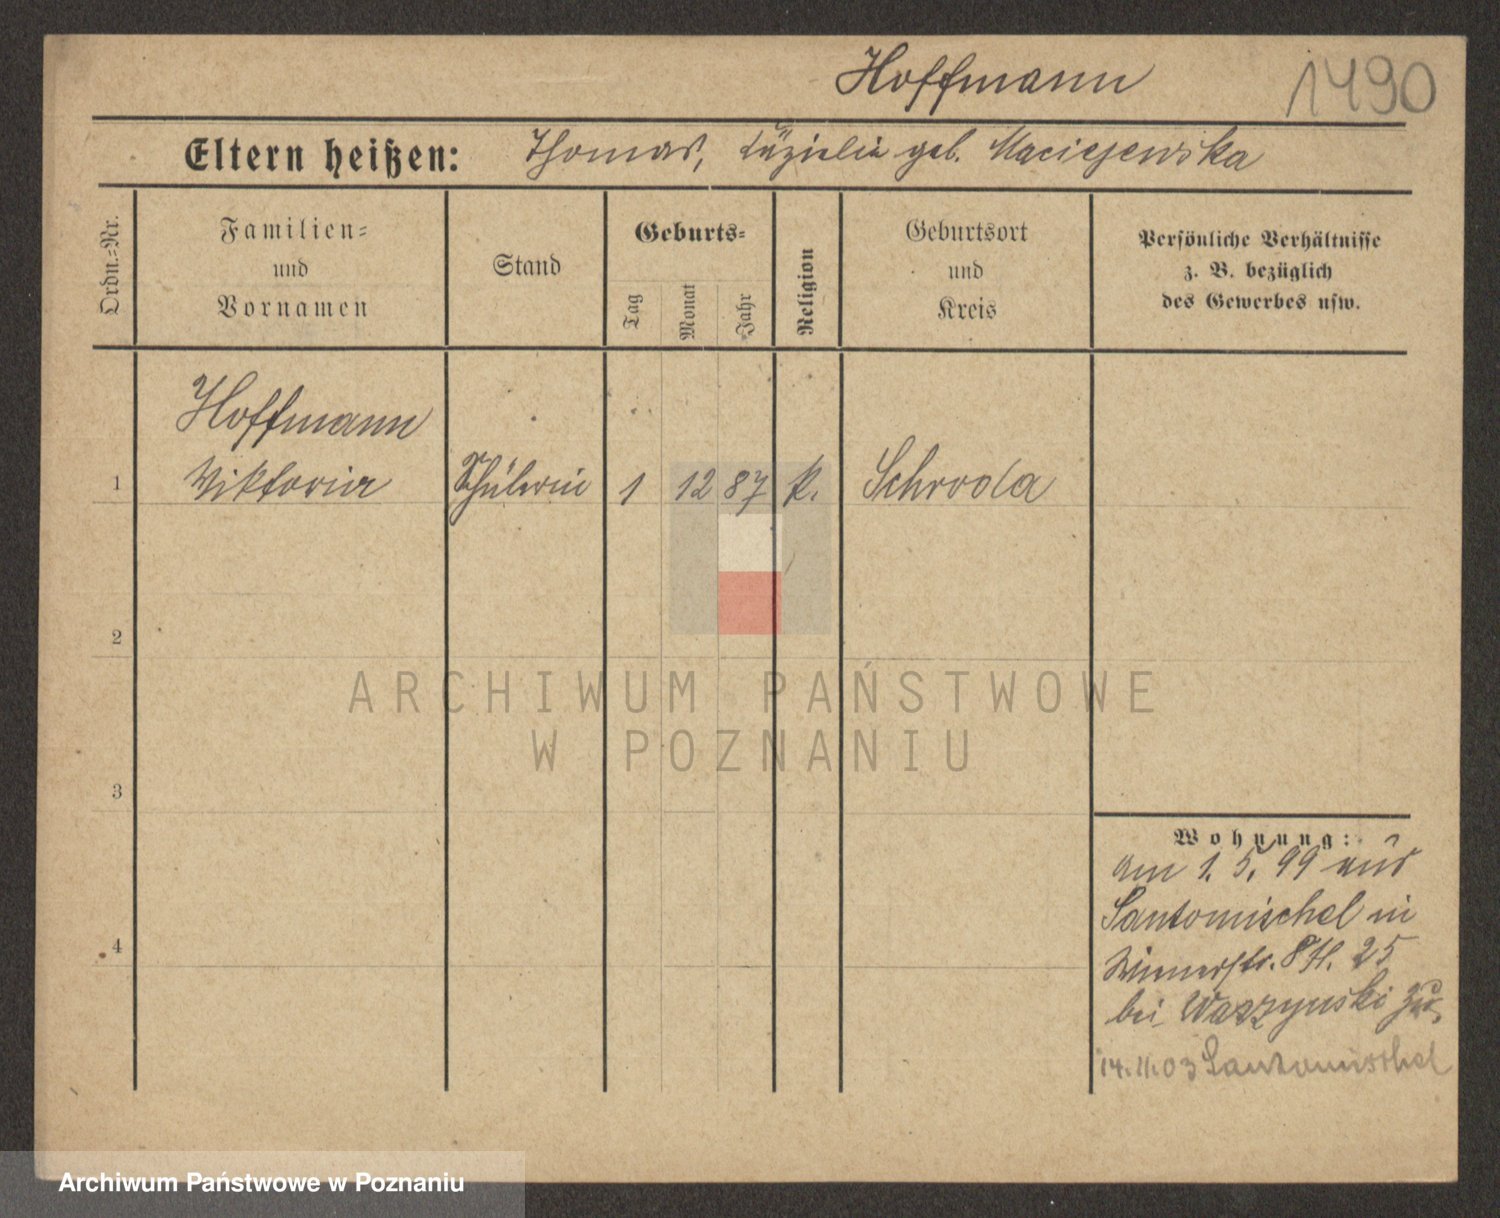 Hoffmann 1490
Eltern heißen: Thomas, geb. Maciejewska
Ordn.-Nr.
Familien-
und
Vornamen
Stand
Geburts-
Tag
Monat
Jahr
Religion
Geburtsort
und
Kreis
Persönliche Verhältnisse
z. B. bezüglich
des Gewerbes usw.
Hoffmann
1 Viktoria Schülerin 1 12 87 k. Schroda
2
3
4
Wohnung:
am 1. 5. 99 aus
Santomischel in
25
bei Wazzynski zu,
14.11.03 Santomischel
ARCHIWUM PAŃSTWOWE
W POZNANIU
Archiwum Państwowe w Poznaniu